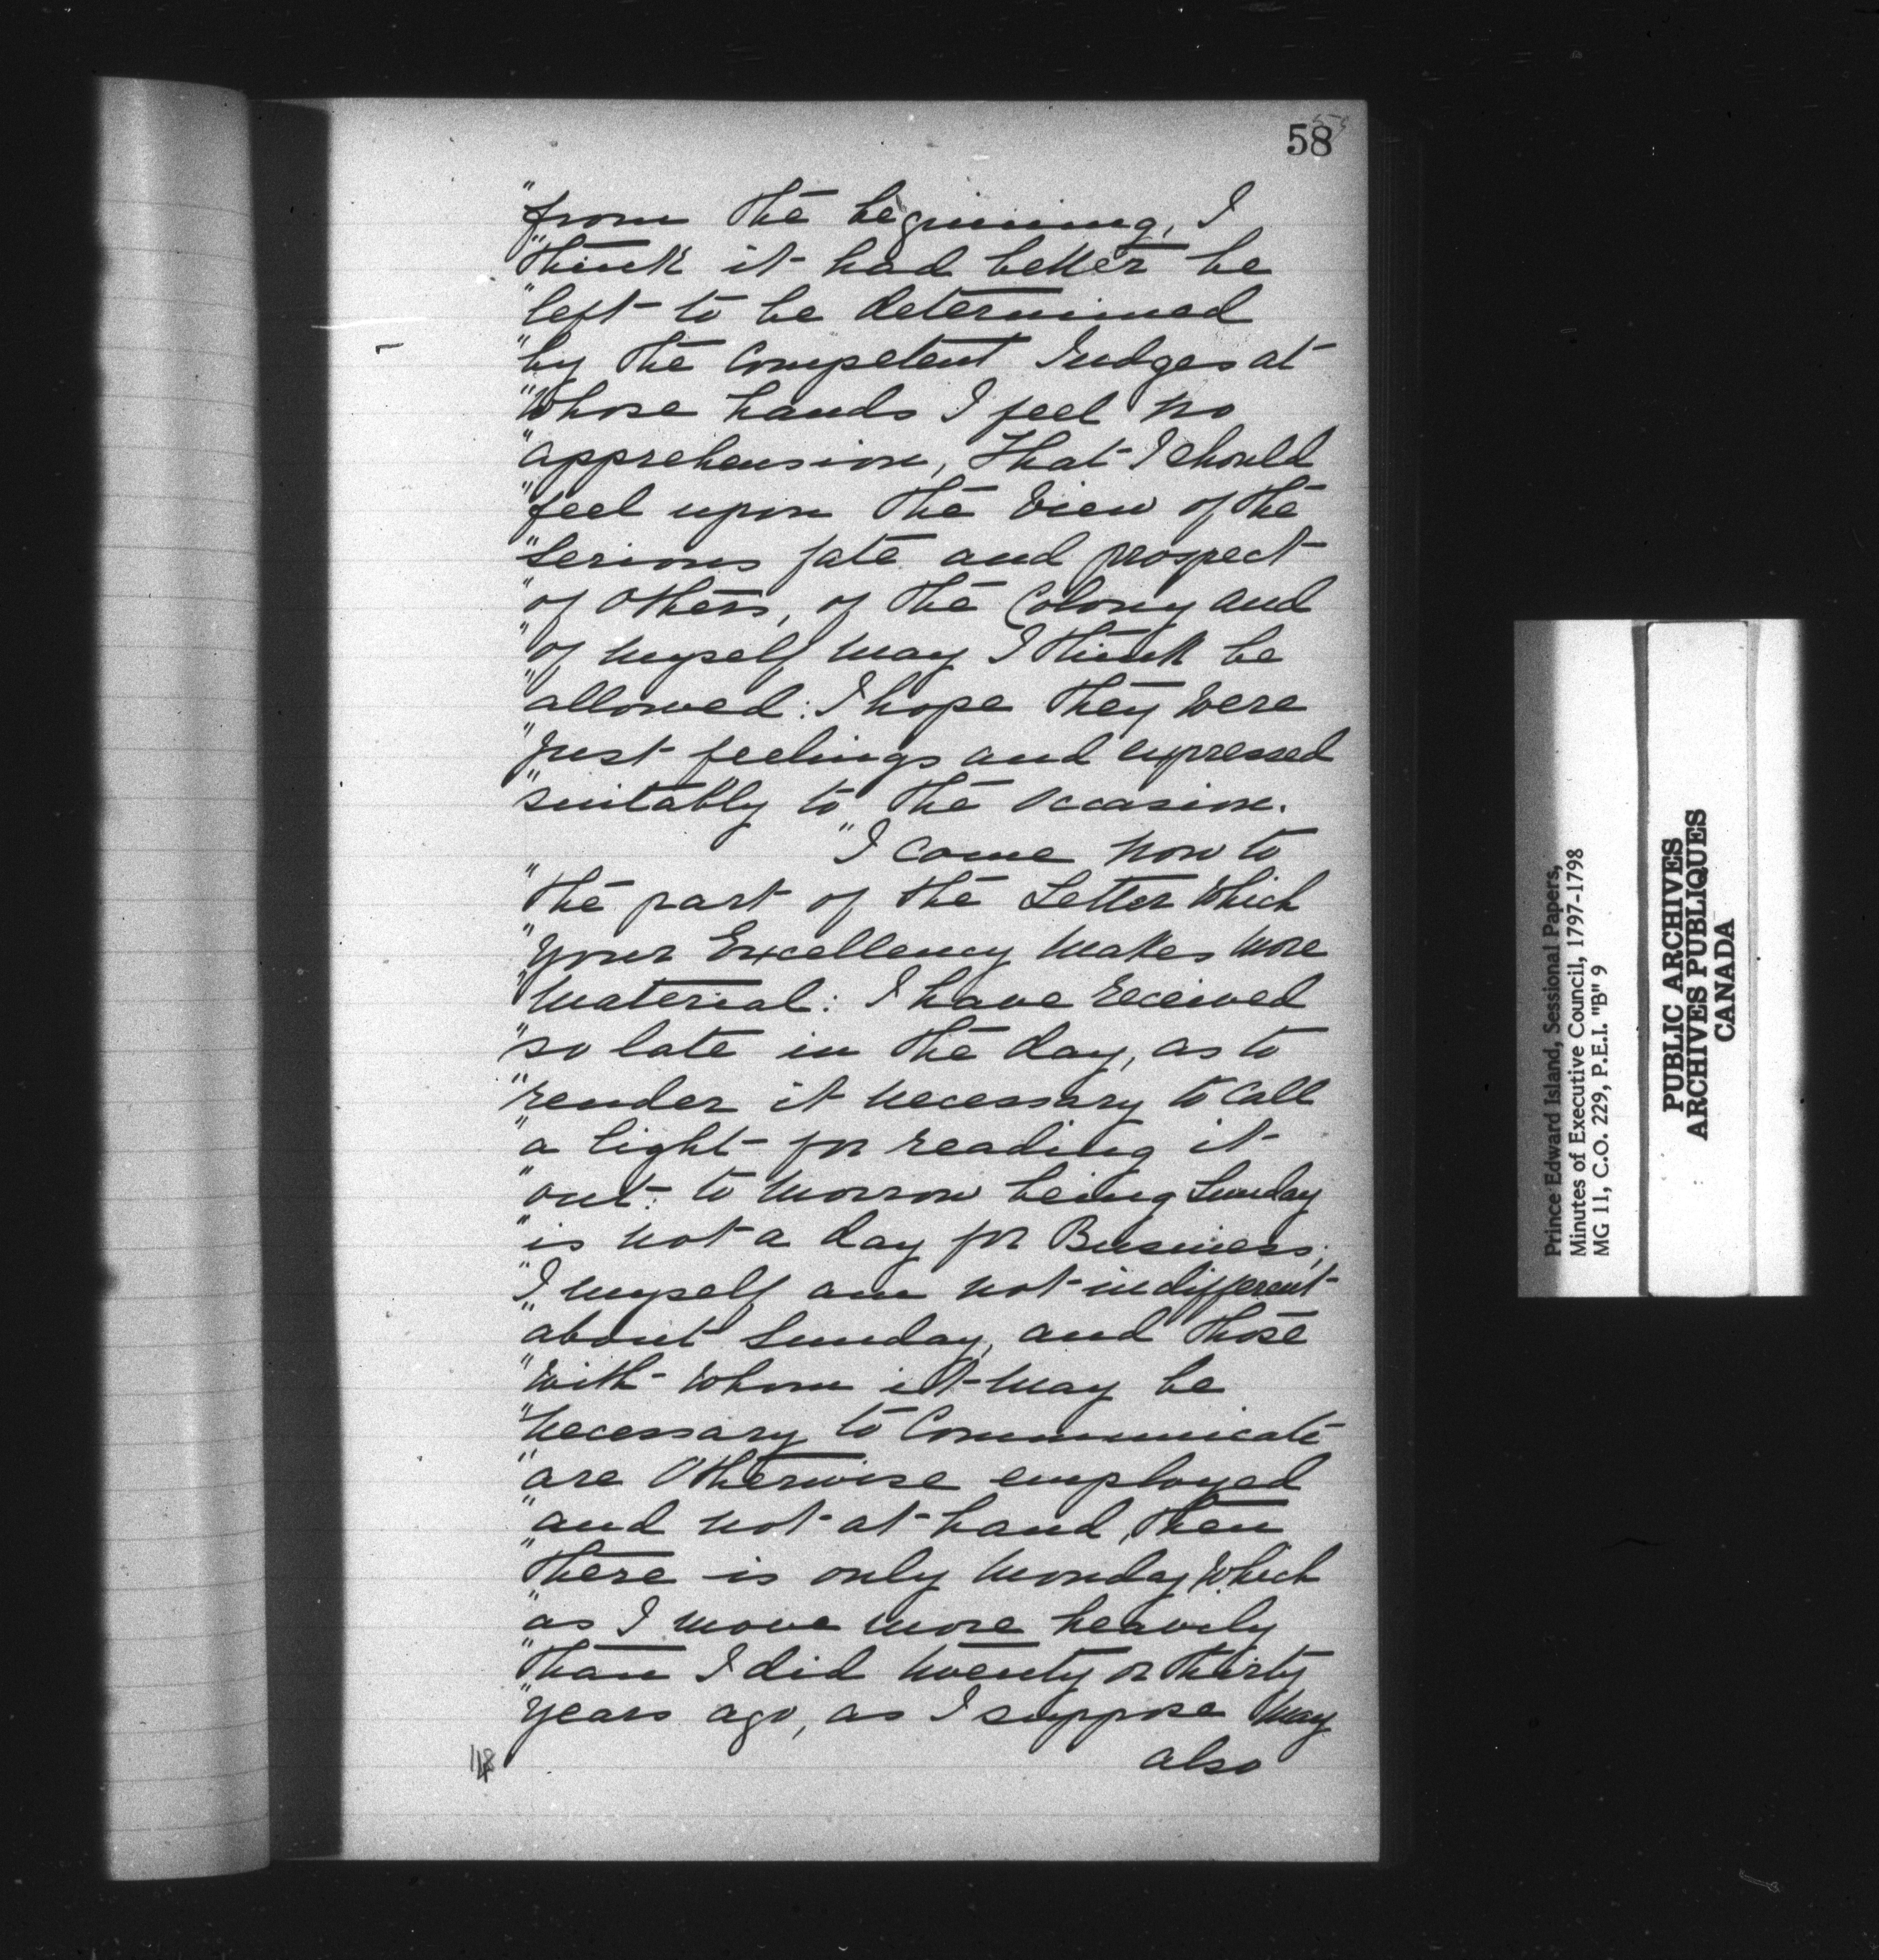 58
"from the beginning, I
"think it had better be
"left to be determined
"by the Competent Judges at
"whose hands I feel no
"apprehension, That I should
"feel upon the View of the
"serious fate and prospect
"of others, of the Colony and
"of myself may I think be
"allowed: I hope they were
"just feelings and expressed
"suitably to the occasion.
"I come now to
"the part of the Letter which
"your Excellency makes more
"material: I have received
"so late in the day, as to
"render it necessary to call
"a light for reading it
"out: to morrow being Sunday
"is not a day for Business;
"I myself am not indifferent
"about Sunday, and those
"with whom it may be
"necessary to Communicate
"are Otherwise employed
"and not at hand, then
"there is only Monday which
"as I move more heavily
"than I did twenty or thirty
"years ago, as I suppose may
also
118
Prince Edward Island, Sessional Papers,
Minutes of Executive Council, 1797-1798
MG 11, C.O. 229, P.E.I. "B" 9
PUBLIC ARCHIVES
ARCHIVES PUBLIQUES
CANADA